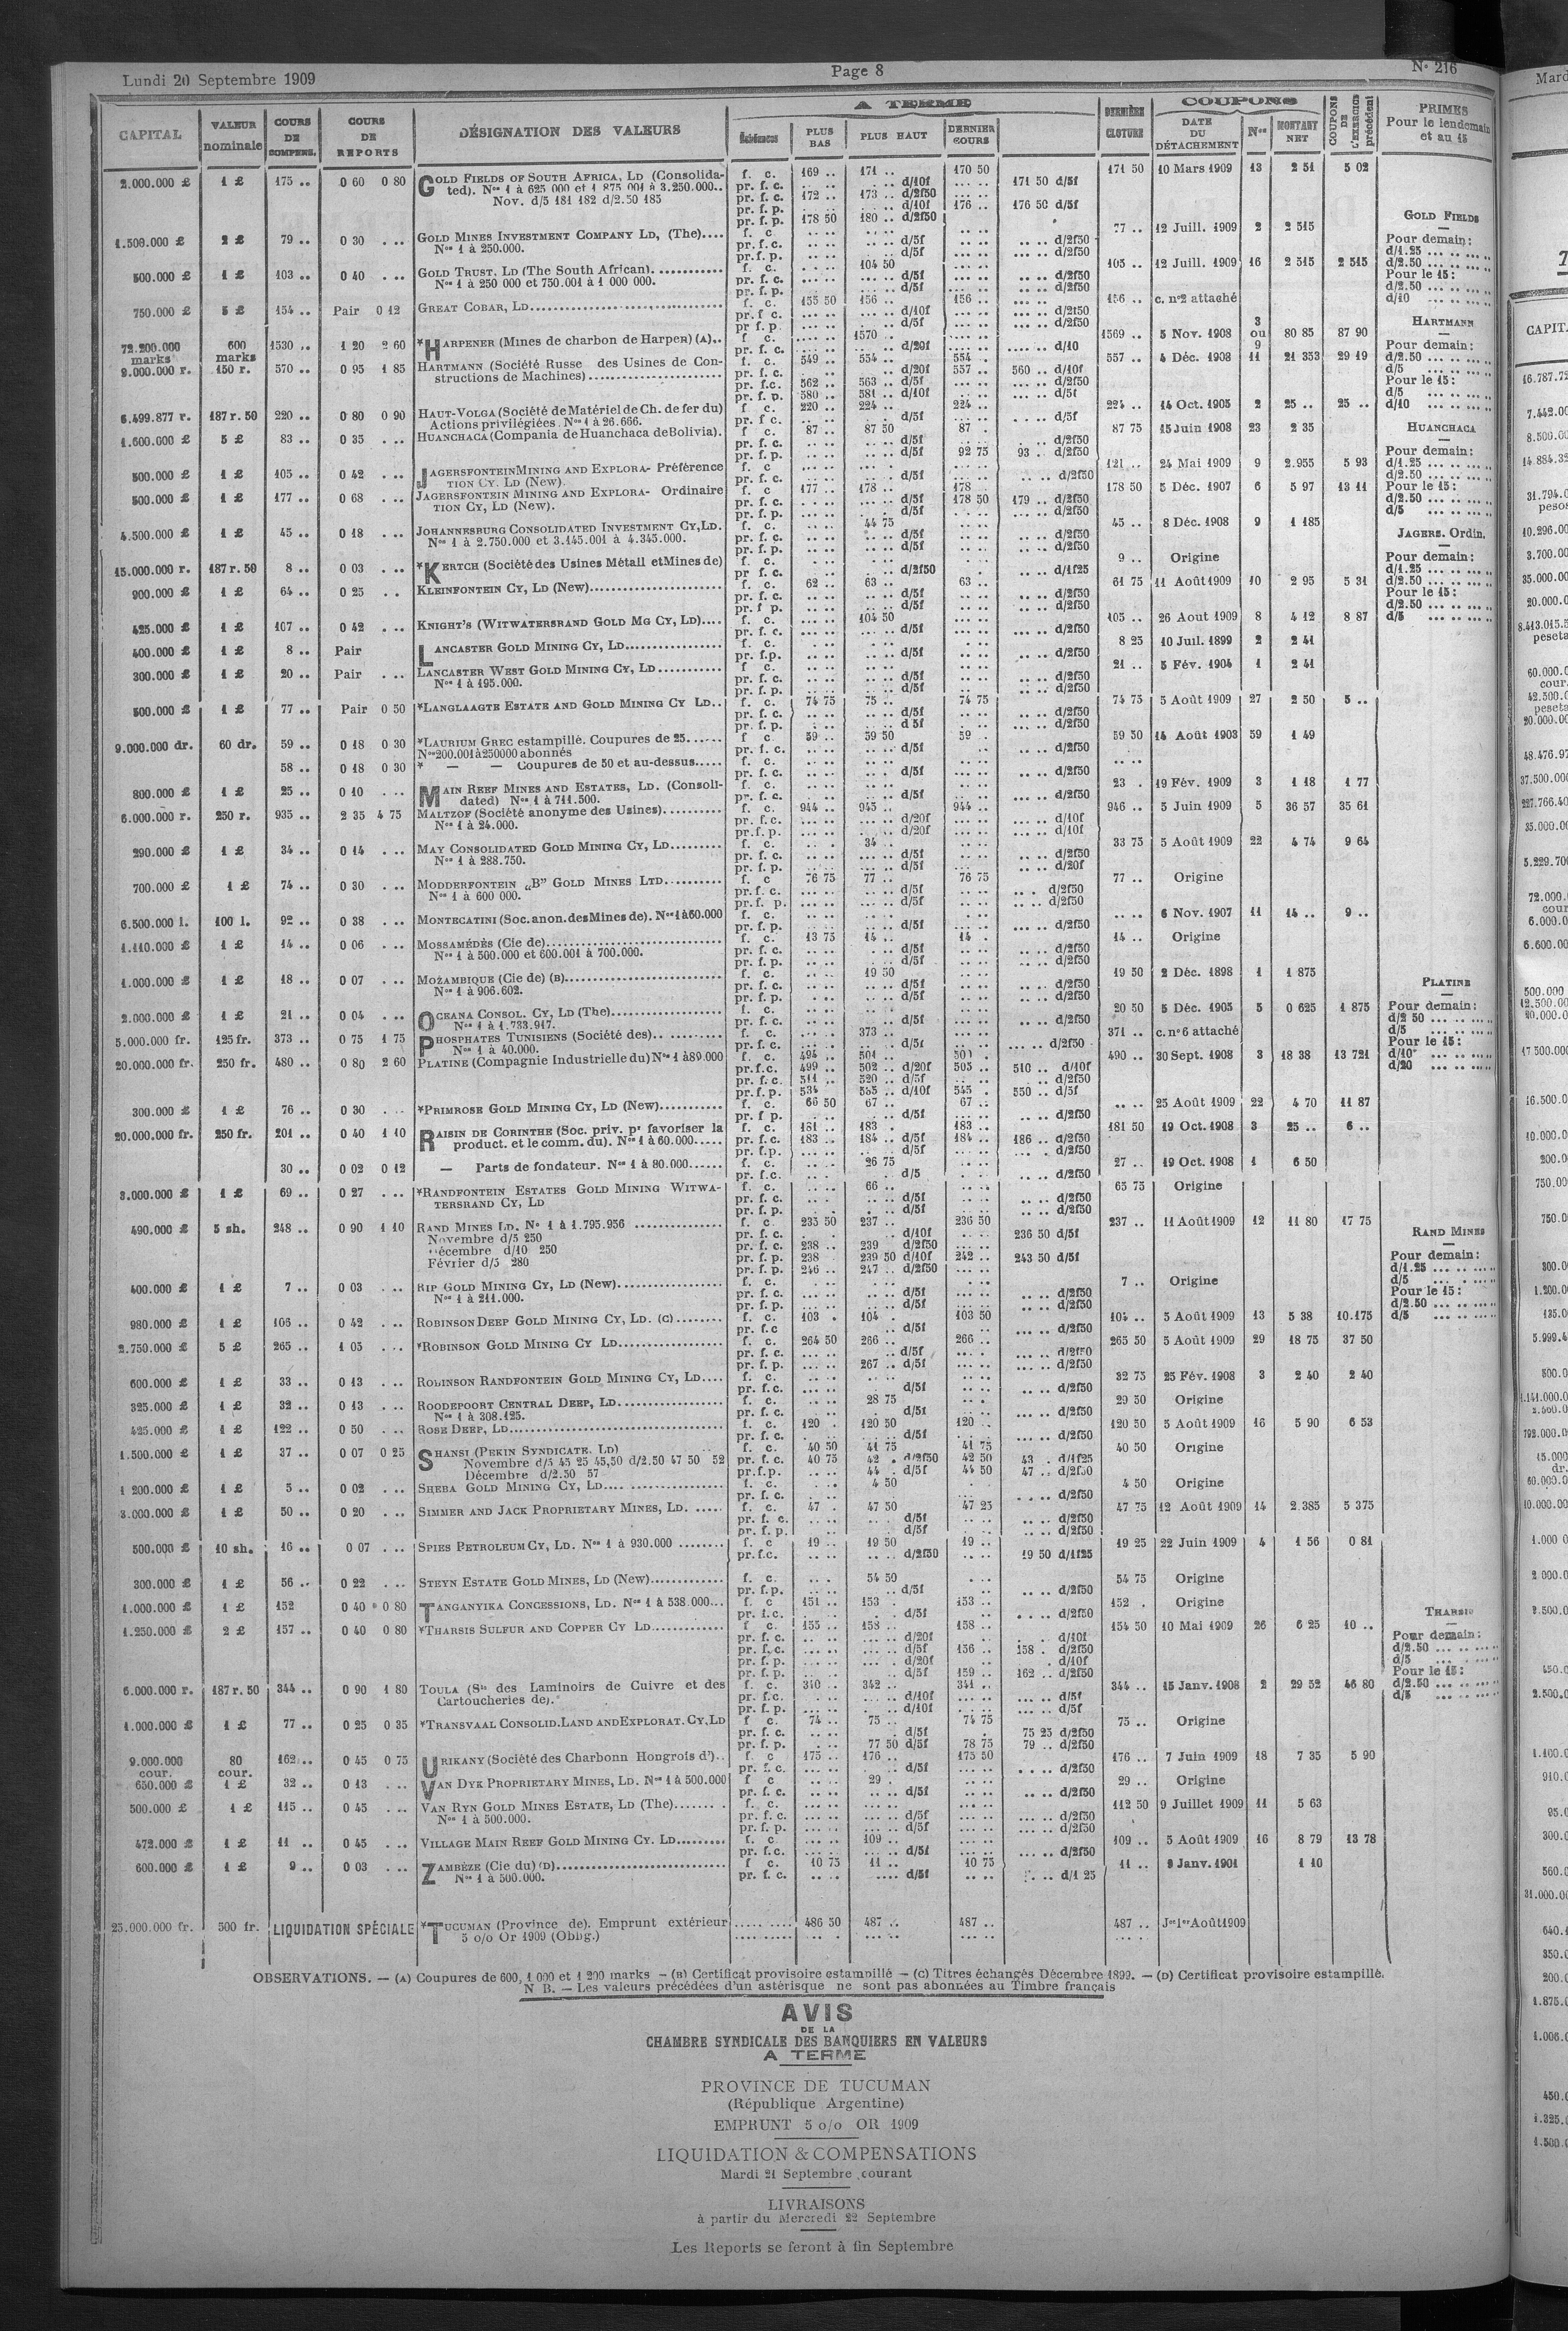 Lundi 20 Septembre 1909
Page 8
N° 216
CAPITAL
VALEUR nominale
COURS DE COMPENS.
COURS DE REPORTS
DÉSIGNATION DES VALEURS
A TERME
Échéances
PLUS BAS
PLUS HAUT
DERNIER COURS
DERNIÈRE CLOTURE
COUPONS
DATE DU DÉTACHEMENT
Nos
MONTANT NET
COUPONS DE L'EXERCICE précédent
PRIMES
Pour le lendemain
et au 15
2.000.000 £ 1 £ 175 .. 0 60 0 80 GOLD FIELDS OF SOUTH AFRICA, LD (Consolida- f. c. 169 .. 171 .. 170 50 171 50 10 Mars 1909 13 2 51 5 02
ted). Nos 1 à 625 000 et 1 875 001 à 3.250.000.. pr. f. c. d/10f 171 50 d/5f
Nov. d/5 181 182 d/2.50 185 pr. f. c. 172 .. 173 .. d/2f50
pr. f. p. d/10f 176 .. 176 50 d/5f
pr. f. p. 178 50 180 .. d/2f50
1.500.000 £ 2 £ 79 .. 0 30 ... GOLD MINES INVESTMENT COMPANY LD, (The).... f. c. 77 .. 12 Juill. 1909 2 2 515
Nos 1 à 250.000. pr. f. c. d/5f d/2f50
pr. f. p. d/5f d/2f50
500.000 £ 1 £ 103 .. 0 40 ... GOLD TRUST, LD (The South African)............ f. c. 104 50 105 .. 12 Juill. 1909 16 2 515 2 515
Nos 1 à 250 000 et 750.001 à 1 000 000. pr. f. c. d/5f d/2f50
pr. f. p. d/5f d/2f50
750.000 £ 5 £ 154 .. Pair 0 12 GREAT COBAR, LD f. c. 155 50 156 .. 156 .. 156 .. c. n°2 attaché
pr. f. c. d/10f d/2f50
pr. f. p. d/5f d/2f50
72.200.000 marks 600 marks 1530 .. 1 20 2 60 *HARPENER (Mines de charbon de Harpen) (A).. f. c. 1570 .. 1569 .. 5 Nov. 1908 3 ou 9 80 85 87 90
pr. f. c. d/20f d/10
9.000.000 r. 150 r. 570 .. 0 95 1 85 HARTMANN (Société Russe des Usines de Con- f. c. 549 .. 554 .. 554 . 557 .. 4 Déc. 1908 11 21 353 29 19
structions de Machines) pr. f. c. d/20f 557 .. 560 .. d/10f
pr. f.c. 562 .. 563 .. d/5f d/2f50
pr. f. p. 580 .. 581 .. d/10f d/5f
6.499.877 r. 187 r. 50 220 .. 0 80 0 90 HAUT-VOLGA (Société de Matériel de Ch. de fer du) f. c. 220 .. 224 .. 224 .. 224 .. 14 Oct. 1905 2 25 .. 25 ..
Actions privilégiées. Nos 1 à 26.666. pr. f. c. d/5f d/5f
1.600.000 £ 5 £ 83 .. 0 35 ... HUANCHACA (Compania de Huanchaca de Bolivia). f. c. 87 .. 87 50 87 . 87 75 15 Juin 1908 23 2 35
pr. f. c. d/5f d/2f50
pr. f. p. d/5f 92 75 93 .. d/2f50
500.000 £ 1 £ 105 .. 0 42 ... JAGERSFONTEIN MINING AND EXPLORA- Préférence f. c. 121 .. 24 Mai 1909 9 2.955 5 93
TION CY. LD (New). pr. f. c. d/5f d/2f50
500.000 £ 1 £ 177 .. 0 68 ... JAGERSFONTEIN MINING AND EXPLORA- Ordinaire f. c. 177 .. 178 .. 178 .. 178 50 5 Déc. 1907 6 5 97 13 11
TION CY, LD (New). pr. f. c. d/5f 178 50 179 .. d/2f50
pr. f. p. d/5f d/2f50
4.500.000 £ 1 £ 45 .. 0 18 ... JOHANNESBURG CONSOLIDATED INVESTMENT CY, LD. f. c. 44 75 45 .. 8 Déc. 1908 9 1 185
Nos 1 à 2.750.000 et 3.145.001 à 4.345.000. pr. f. c. d/5f d/2f50
pr. f. p. d/5f d/2f50
15.000.000 r. 187 r. 50 8 .. 0 03 ... *KERTCH (Société des Usines Métall et Mines de) f. c. 9 .. Origine
pr. f. c. d/2f50 d/1f25
900.000 £ 1 £ 64 .. 0 25 .. KLEINFONTEIN CY, LD (New) f. c. 62 .. 63 .. 63 .. 61 75 11 Août 1909 10 2 95 5 31
pr. f. c. d/5f d/2f50
pr. f. p. d/5f d/2f50
425.000 £ 1 £ 107 .. 0 42 ... KNIGHT'S (WITWATERSRAND GOLD MG CY, LD).... f. c. 104 50 105 .. 26 Aout 1909 8 4 12 8 87
pr. f. c. d/5f d/2f50
400.000 £ 1 £ 8 .. Pair LANCASTER GOLD MINING CY, LD f. c. 8 25 10 Juil. 1899 2 2 41
pr. f.p. d/5f d/2f50
300.000 £ 1 £ 20 .. Pair ... LANCASTER WEST GOLD MINING CY, LD f. c. 21 .. 5 Fév. 1904 1 2 41
Nos 1 à 195.000. pr. f. c. d/5f d/2f50
pr. f. p. d/5f d/2f50
500.000 £ 1 £ 77 .. Pair 0 50 *LANGLAAGTE ESTATE AND GOLD MINING CY LD.. f. c. 74 75 75 .. 74 75 74 75 5 Août 1909 27 2 50 5 ..
pr. f. c. d/5f d/2f50
pr. f. p. d 5f d/2f50
9.000.000 dr. 60 dr. 59 .. 0 18 0 30 *LAURIUM GREC estampillé. Coupures de 25 f. c 59 .. 59 50 59 .. 59 50 14 Août 1903 59 1 49
Nos 200.001 à 250000 abonnés pr. f. c. d/5f d/2f50
58 .. 0 18 0 30 * — — Coupures de 50 et au-dessus..... f. c.
pr. f. c. d/5f d/2f50
800.000 £ 1 £ 25 .. 0 10 ... MAIN REEF MINES AND ESTATES, LD. (Consoli- f. c. 23 . 19 Fév. 1909 3 1 18 1 77
dated) Nos 1 à 711.500. pr. f. c. d/5f d/2f50
6.000.000 r. 250 r. 935 .. 2 35 4 75 MALTZOF (Société anonyme des Usines).......... f. c. 944 .. 945 .. 944 .. 946 .. 5 Juin 1909 5 36 57 35 61
Nos 1 à 24.000. pr. f.c. d/20f d/10f
pr. f. p. d/20f d/10f
290.000 £ 1 £ 34 .. 0 14 ... MAY CONSOLIDATED GOLD MINING CY, LD......... f. c. 34 .. 33 75 5 Août 1909 22 4 74 9 64
Nos 1 à 288.750. pr. f. c. d/5f d/2f50
pr. f. p. d/5f d/20f
700.000 £ 1 £ 74 .. 0 30 ... MODDERFONTEIN „B" GOLD MINES LTD.......... f. c 76 75 77 .. 76 75 77 .. Origine
Nos 1 à 600 000. pr. f. c. d/5f d/2f50
pr. f. p. d/5f d/2f50
6.500.000 l. 100 l. 92 .. 0 38 ... MONTECATINI (Soc. anon. des Mines de). Nos 1 à 60.000 f. c. 6 Nov. 1907 11 14 .. 9 ..
pr. f. p. d/5f d/2f50
1.110.000 £ 1 £ 14 .. 0 06 ... MOSSAMÉDÈS (Cie de) f. c. 13 75 14 .. 14 . 14 .. Origine
Nos 1 à 500.000 et 600.001 à 700.000. pr. f. c. d/5f d/2f50
pr. f. p. d/5f d/2f50
1.000.000 £ 1 £ 18 .. 0 07 ... MOZAMBIQUE (Cie de) (B) f. c. 19 50 19 50 2 Déc. 1898 1 1 875
Nos 1 à 906.602. pr. f. c. d/5f d/2f50
pr. f. p. d/5f d/2f50
2.000.000 £ 1 £ 21 .. 0 04 ... OCEANA CONSOL. CY, LD (The) f. c. 20 50 5 Déc. 1905 5 0 625 1 875
Nos 1 à 1.733.917. pr. f. c. d/5f d/2f50
5.000.000 fr. 125 fr. 373 .. 0 75 1 75 PHOSPHATES TUNISIENS (Société des) f. c. 373 .. 371 .. c. n°6 attaché
Nos 1 à 40.000. pr. f. c. d/5f d/2f50
20.000.000 fr. 250 fr. 480 .. 0 80 2 60 PLATINE (Compagnie Industrielle du) Nos 1 à 89.000 f. c. 494 .. 501 .. 490 .. 30 Sept. 1908 3 18 38 13 721
pr.f.c. 499 .. 502 .. d/20f 505 .. 510 .. d/10f
pr. f. c. 511 .. 520 .. d/5f d/2f50
pr. f. p. 534 d/10f 545 . 550 .. d/5f
300.000 £ 1 £ 76 .. 0 30 ... *PRIMROSE GOLD MINING CY, LD (New) f. c. 66 50 67 .. 67 .. 25 Août 1909 22 4 70 11 87
pr. f. p. d/5f d/2f50
20.000.000 fr. 250 fr. 201 .. 0 40 1 10 RAISIN DE CORINTHE (Soc. priv. pr favoriser la f. c. 181 .. 183 . 183 .. 181 50 19 Oct. 1908 3 25 .. 6 ..
product. et le comm. du). Nos 1 à 60.000..... pr. f. c. 183 .. 184 .. d/5f 184 .. 186 .. d/2f50
pr. f.p. d/5f d/2f50
30 .. 0 02 0 12 — Parts de fondateur. Nos 1 à 80.000 f. c. 26 75 27 .. 19 Oct. 1908 1 6 50
pr. f.c. d/5 d/2f50
3.000.000 £ 1 £ 69 .. 0 27 ... *RANDFONTEIN ESTATES GOLD MINING WITWA- f. c. 66 .. 65 75 Origine
TERSRAND CY, LD pr. f. c. d/5f d/2f50
pr. f. p. d/5f d/2f50
490.000 £ 5 sh. 248 .. 0 90 1 10 RAND MINES LD. N° 1 à 1.795.956 f. c. 235 50 237 .. 236 50 237 .. 11 Août 1909 12 11 80 17 75
Novembre d/5 250 pr. f. c. d/10f 236 50 d/5f
Décembre d/10 250 pr. f. c. 238 .. 239 d/2f50
Février d/5 280 pr. f. p. 238 239 50 d/10f 242 .. 243 50 d/5f
pr. f. p. 246 .. 247 .. d/2f50
400.000 £ 1 £ 7 .. 0 03 ... RIP GOLD MINING CY, LD (New) f. c. 7 .. Origine
Nos 1 à 211.000. pr. f. c. d/5f d/2f50
pr. f. p. d/5f d/2f50
980.000 £ 1 £ 106 .. 0 42 ... ROBINSON DEEP GOLD MINING CY, LD. (C) f. c. 103 . 104 . 103 50 104 .. 5 Août 1909 13 5 38 10.175
pr. f.c d/5f d/2f50
2.750.000 £ 5 £ 265 .. 1 05 ... *ROBINSON GOLD MINING CY LD f. c. 264 50 266 .. 266 .. 265 50 5 Août 1909 29 18 75 37 50
pr. f. c. d/5f d/2f50
pr. f. p. 267 .. d/5f d/2f50
600.000 £ 1 £ 33 .. 0 13 ... ROBINSON RANDFONTEIN GOLD MINING CY, LD.... f. c. 32 75 25 Fév. 1908 3 2 40 2 40
pr. f.c. d/5f d/2f50
325.000 £ 1 £ 32 .. 0 13 ... ROODEPOORT CENTRAL DEEP, LD f. c. 28 75 29 50 Origine
Nos 1 à 308.125. pr. f. c. d/5f d/2f50
425.000 £ 1 £ 122 .. 0 50 ... ROSE DEEP, LD f. c. 120 . 120 50 120 .. 120 50 5 Août 1909 16 5 90 6 53
pr. f. c. d/5f d/2f50
1.500.000 £ 1 £ 37 .. 0 07 0 25 SHANSI (PEKIN SYNDICATE, LD) f. c. 40 50 41 75 41 75 40 50 Origine
Novembre d/5 45 25 45,50 d/2.50 47 50 52 pr. f. c. 40 75 42 . d/2f50 42 50 43 . d/1f25
Décembre d/2.50 57 pr.f.p. 44 . d/5f 44 50 47 .. d/2f50
1 200.000 £ 1 £ 5 .. 0 02 ... SHEBA GOLD MINING CY, LD f. c. 4 50 4 50 Origine
pr. f. c. d/2f50
3.000.000 £ 1 £ 50 .. 0 20 ... SIMMER AND JACK PROPRIETARY MINES, LD. f. c. 47 . 47 50 47 25 47 75 12 Août 1909 14 2.385 5 375
pr. f. c. d/5f d/2f50
pr. f. p. d/5f d/2f50
500.000 £ 10 sh. 16 .. 0 07 ... SPIES PETROLEUM CY, LD. Nos 1 à 930.000 f. c 19 .. 19 50 19 .. 19 25 22 Juin 1909 4 1 56 0 81
pr.f.c. d/2f50 19 50 d/1f25
300.000 £ 1 £ 56 .. 0 22 ... STEYN ESTATE GOLD MINES, LD (New) f. c. 54 50 54 75 Origine
pr. f.p. d/5f d/2f50
1.000.000 £ 1 £ 152 0 40 0 80 TANGANYIKA CONCESSIONS, LD. Nos 1 à 538.000... f. c 151 .. 153 . 153 .. 152 . Origine
pr. f.c. d/5f d/2f50
1.250.000 £ 2 £ 157 .. 0 40 0 80 *THARSIS SULFUR AND COPPER CY LD f. c. 155 .. 158 .. 158 .. 154 50 10 Mai 1909 26 6 25 10 ..
pr. f. c. d/20f d/10f
pr. f. c. d/5f 156 .. 158 . d/2f50
pr. f. p. d/20f d/10f
pr. f. p. d/5f 159 .. 162 .. d/2f50
6.000.000 r. 187 r. 50 344 .. 0 90 1 80 TOULA (Sté des Laminoirs de Cuivre et des f. c. 340 .. 342 .. 341 .. 344 .. 15 Janv. 1908 2 29 52 46 80
Cartoucheries de). pr. f.c. d/10f d/5f
pr. f. p. d/10f d/5f
1.000.000 £ 1 £ 77 .. 0 25 0 35 *TRANSVAAL CONSOLID. LAND AND EXPLORAT. CY, LD f c. 74 .. 75 .. 74 75 75 .. Origine
pr. f. c. d/5f 75 25 d/2f50
pr. f. p. 77 50 d/5f 78 75 79 .. d/2f50
9.000.000 cour. 80 cour. 162 .. 0 45 0 75 URIKANY (Société des Charbonn Hongrois d').. f. c 175 .. 176 .. 175 50 176 .. 7 Juin 1909 18 7 35 5 90
pr. f. c. d/5f d/2f50
650.000 £ 1 £ 32 .. 0 13 ... VAN DYK PROPRIETARY MINES, LD. Nos 1 à 500.000 f c 29 . 29 .. Origine
pr. f. c. d/5f d/2f50
500.000 £ 1 £ 115 .. 0 45 ... VAN RYN GOLD MINES ESTATE, LD (The) f. c. 112 50 9 Juillet 1909 11 5 63
Nos 1 à 500.000. pr. f. c. d/5f d/2f50
pr. f. p. d/5f d/2f50
472.000 £ 1 £ 11 .. 0 45 ... VILLAGE MAIN REEF GOLD MINING CY. LD f. c 109 .. 109 .. 5 Août 1909 16 8 79 13 78
pr. f.c. d/5f d/2f50
600.000 £ 1 £ 9 .. 0 03 ... ZAMBÈZE (Cie du) (D) f c. 10 75 11 .. 10 75 11 .. Janv. 1901 1 10
Nos 1 à 500.000. pr. f. c. d/5f d/1 25
25.000.000 fr. 500 fr. LIQUIDATION SPÉCIALE *TUCUMAN (Province de). Emprunt extérieur 486 50 487 .. 487 .. 487 .. Jce 1er Août 1909
5 o/o Or 1909 (Obbg.)
GOLD FIELDS
Pour demain:
d/1.25
d/2.50
Pour le 15:
d/2.50
d/10
HARTMANN
Pour demain:
d/2.50
d/5
Pour le 15:
d/5
d/10
HUANCHACA
Pour demain:
d/1.25
d/2.50
Pour le 15:
d/2.50
d/5
JAGERS. Ordin.
Pour demain:
d/1.25
d/2.50
Pour le 15:
d/2.50
d/5
PLATINE
Pour demain:
d/2 50
d/5
Pour le 15:
d/10
d/20
RAND MINES
Pour demain:
d/1.25
d/5
Pour le 15:
d/2.50
d/5
THARSIS
Pour demain:
d/2.50
d/5
Pour le 15:
d/2.50
d/5
OBSERVATIONS. — (A) Coupures de 600, 1 000 et 1 200 marks — (B) Certificat provisoire estampillé — (C) Titres échangés Décembre 1899. — (D) Certificat provisoire estampillé.
N B. — Les valeurs précédées d'un astérisque ne sont pas abonnées au Timbre français
AVIS
DE LA
CHAMBRE SYNDICALE DES BANQUIERS EN VALEURS
A TERME
PROVINCE DE TUCUMAN
(République Argentine)
EMPRUNT 5 o/o OR 1909
LIQUIDATION & COMPENSATIONS
Mardi 21 Septembre courant
LIVRAISONS
à partir du Mercredi 22 Septembre
Les Reports se feront à fin Septembre